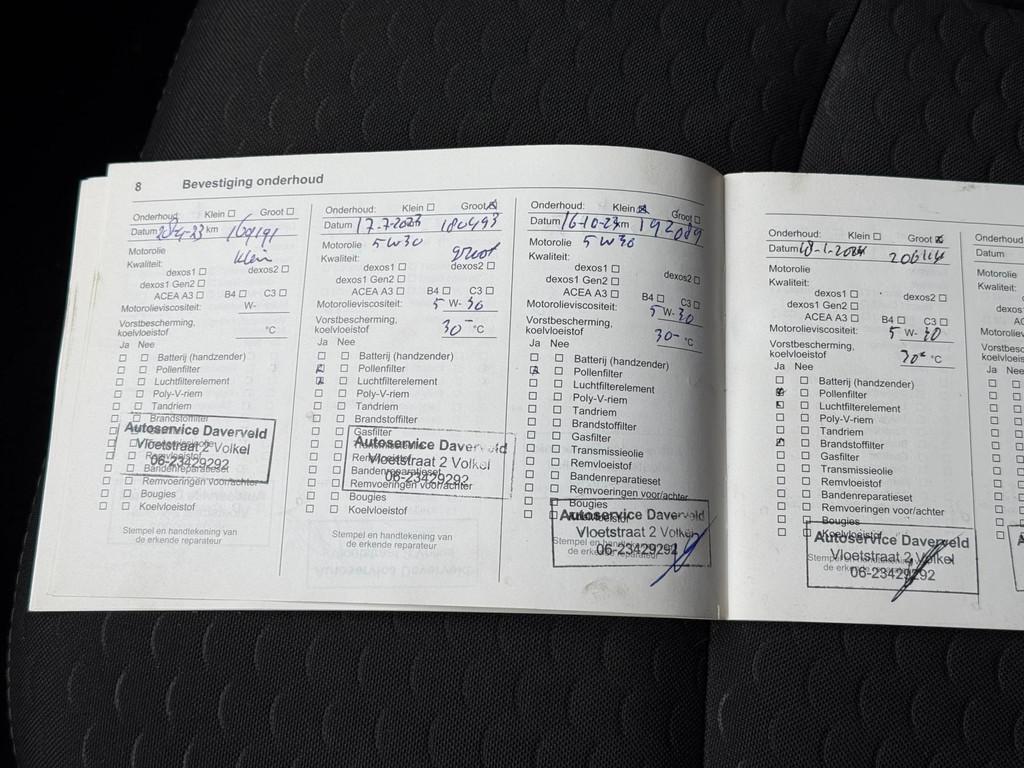 8 Bevestiging onderhoud
Onderhoud: Klein □ Groot □
Datum km 169191
Motorolie
Klein
Kwaliteit:
dexos1 □ dexos2 □
dexos1 Gen2 □
ACEA A3 □ B4 □ C3 □
Motorolieviscositeit: W-
Vorstbescherming,
koelvloeistof °C
Ja Nee
□ □ Batterij (handzender)
□ □ Pollenfilter
□ □ Luchtfilterelement
□ □ Poly-V-riem
□ □ Tandriem
□ □ Brandstoffilter
Autoservice Daverveld
Vloetstraat 2 Volkel
06-23429292
□ □ Bandenreparatieset
□ □ Remvoeringen voor/achter
□ □ Bougies
□ □ Koelvloeistof
Stempel en handtekening van
de erkende reparateur
Onderhoud: Klein □ Groot ☒
Datum 17-7-2023 180493
Motorolie 5W30
Kwaliteit: groot
dexos1 □ dexos2 □
dexos1 Gen2 □
ACEA A3 □ B4 □ C3 □
Motorolieviscositeit: 5 W- 30
Vorstbescherming,
koelvloeistof 30- °C
Ja Nee
□ □ Batterij (handzender)
☒ □ Pollenfilter
☒ □ Luchtfilterelement
□ □ Poly-V-riem
□ □ Tandriem
□ □ Brandstoffilter
□ □ Gasfilter
Autoservice Daverveld
Vloetstraat 2 Volkel
Bandenreparatieset
06-23429292
□ □ Remvoeringen voor/achter
□ □ Bougies
□ □ Koelvloeistof
Stempel en handtekening van
de erkende reparateur
Onderhoud: Klein ☒ Groot □
Datum 16-10-23 km 192089
Motorolie 5W30
Kwaliteit:
dexos1 □ dexos2 □
dexos1 Gen2 □
ACEA A3 □ B4 □ C3 □
Motorolieviscositeit: 5 W- 30
Vorstbescherming,
koelvloeistof 30- °C
Ja Nee
□ □ Batterij (handzender)
☒ □ Pollenfilter
□ □ Luchtfilterelement
□ □ Poly-V-riem
□ □ Tandriem
□ □ Brandstoffilter
□ □ Gasfilter
□ □ Transmissieolie
□ □ Remvloeistof
□ □ Bandenreparatieset
□ □ Remvoeringen voor/achter
□ □ Bougies
□ □ Koelvloeistof
Autoservice Daverveld
Vloetstraat 2 Volkel
06-23429292
Stempel en
de erkende reparateur
Onderhoud: Klein □ Groot ☒
Datum 18-1-2024 206114
Motorolie
Kwaliteit:
dexos1 □ dexos2 □
dexos1 Gen2 □
ACEA A3 □ B4 □ C3 □
Motorolieviscositeit: 5 W- 30
Vorstbescherming,
koelvloeistof 30- °C
Ja Nee
□ □ Batterij (handzender)
☒ □ Pollenfilter
☒ □ Luchtfilterelement
□ □ Poly-V-riem
□ □ Tandriem
☒ □ Brandstoffilter
□ □ Gasfilter
□ □ Transmissieolie
□ □ Remvloeistof
□ □ Bandenreparatieset
□ □ Remvoeringen voor/achter
□ □ Bougies
□ □ Koelvloeistof
Autoservice Daverveld
Vloetstraat 2 Volkel
06-23429292
de erkende
Onderhoud
Datum
Motorolie
Kwaliteit:
Ja Nee